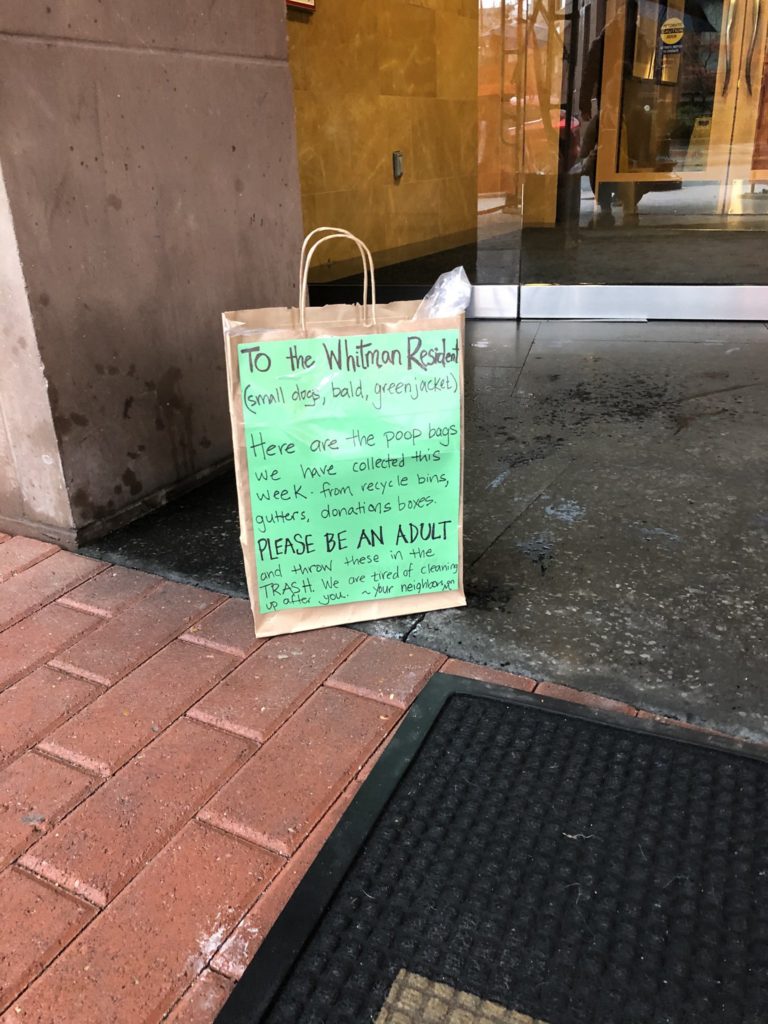 To the Whitman Resident
(small dogs, bald, green jacket)
Here are the poop bags
we have collected this
week. from recycle bins,
gutters, donations boxes.
PLEASE BE AN ADULT
and throw these in the
TRASH. We are tired of cleaning
up after you. ~your neighbors
CAUTION